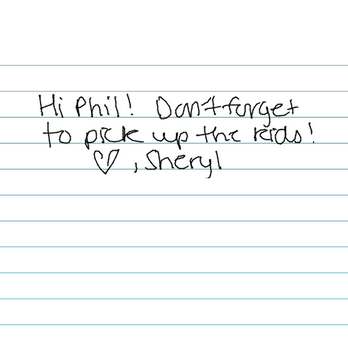 Hi Phil! Don't forget
to pick up the kids!
♡, Sheryl